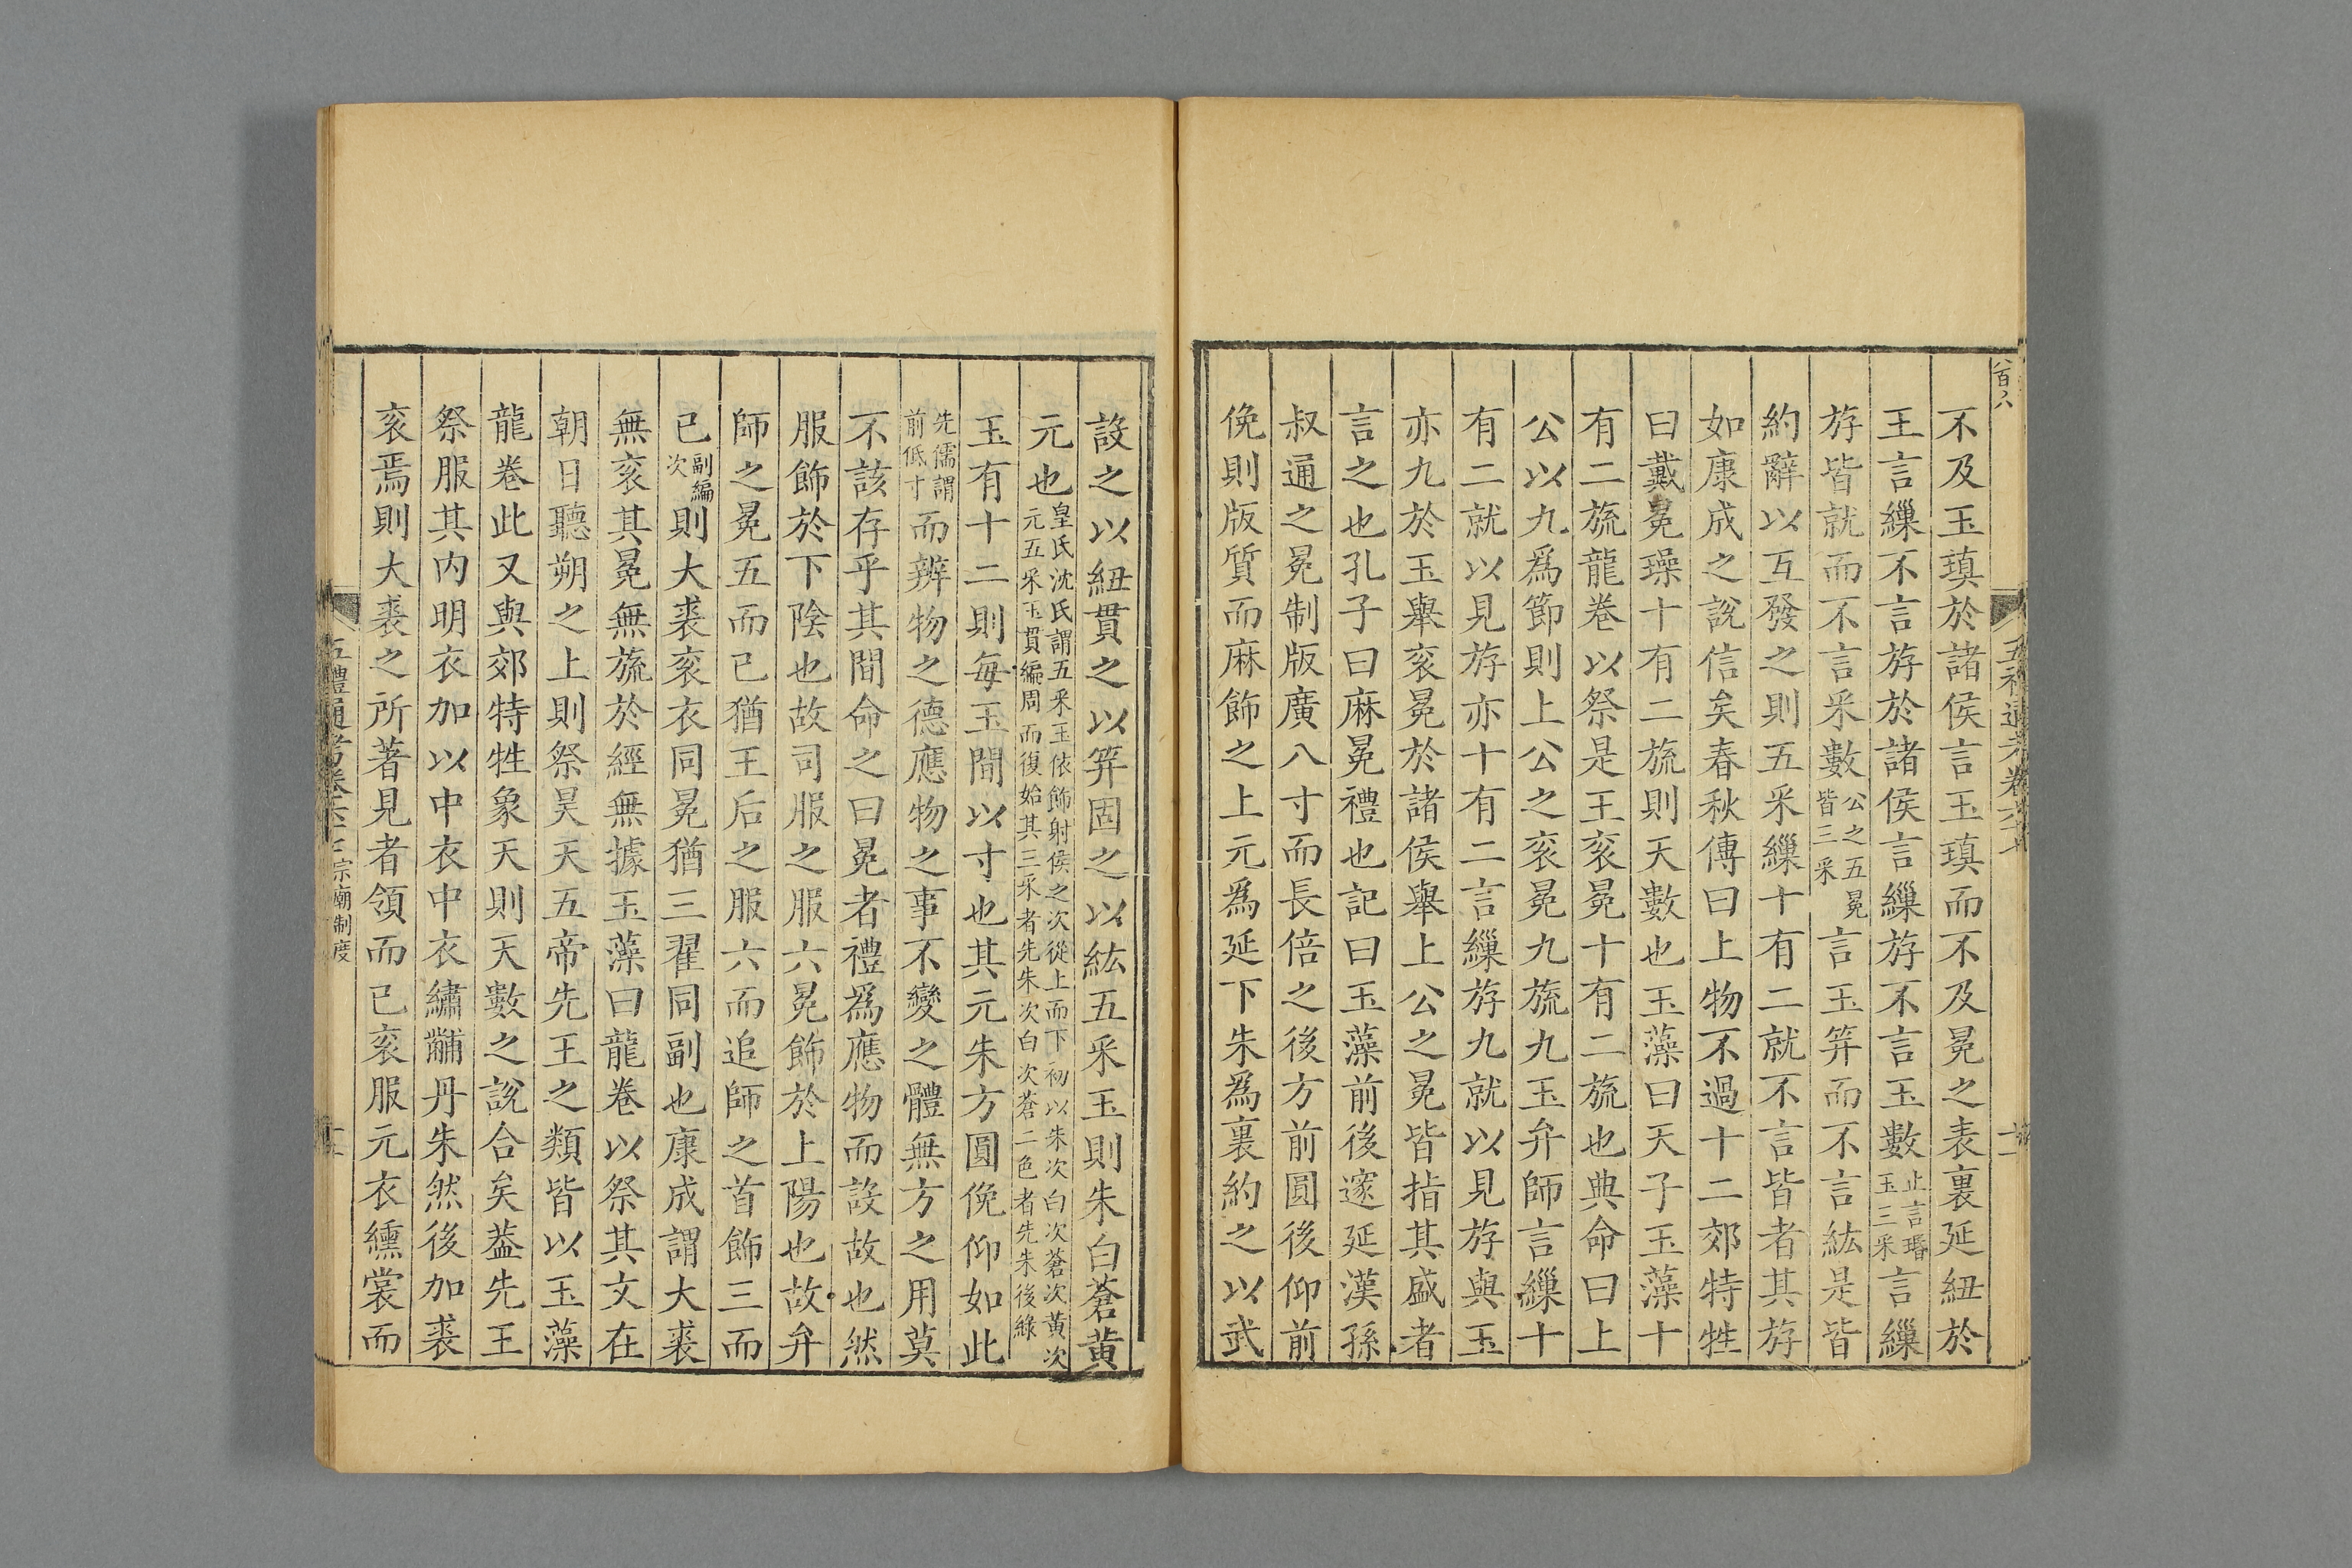 八百八
不及玉瑱於諸侯言玉瑱而不及冕之表裏延紐於
王言繅不言斿於諸侯言繅斿不言玉數止言瑉玉三采言繅
斿皆就而不言采數公之五冕皆三采言玉笄而不言紘是皆
約辭以互發之則五采繅十有二就不言皆者其斿
如康成之說信矣春秋傳曰上物不過十二郊特牲
曰戴冕璪十有二旒則天數也玉藻曰天子玉藻十
有二旒龍卷以祭是王衮冕十有二旒也典命曰上
公以九爲節則上公之衮冕九旒九玉弁師言繅十
有二就以見斿亦十有二言繅斿九就以見斿與玉
亦九於玉舉衮冕於諸侯舉上公之冕皆指其盛者
言之也孔子曰麻冕禮也記曰玉藻前後邃延漢孫
叔通之冕制版廣八寸而長倍之後方前圓後仰前
俛則版質而麻飾之上元爲延下朱爲裏約之以武
設之以紐貫之以笄固之以紘五采玉則朱白蒼黃
元也皇氏沈氏謂五采玉依飾射侯之次從上而下初以朱次白次蒼次黃次元五采玉貫編周而復始其三采者先朱次白次蒼二色者先朱後綠
玉有十二則每玉間以寸也其元朱方圓俛仰如此
先儒謂前低寸而辨物之德應物之事不變之體無方之用莫
不該存乎其間命之曰冕者禮爲應物而設故也然
服飾於下陰也故司服之服六冕飾於上陽也故弁
師之冕五而已猶王后之服六而追師之首飾三而
已副編次則大裘衮衣同冕猶三翟同副也康成謂大裘
無衮其冕無旒於經無據玉藻曰龍卷以祭其文在
朝日聽朔之上則祭昊天五帝先王之類皆以玉藻
龍卷此又與郊特牲象天則天數之說合矣葢先王
祭服其內明衣加以中衣中衣繡黼丹朱然後加裘
衮焉則大裘之所著見者領而已衮服元衣纁裳而
五禮通考卷六十 宗廟制度